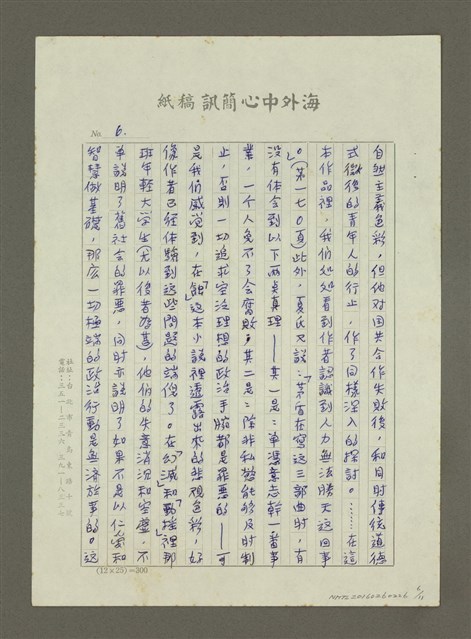 海外中心簡訊稿紙
No 6.
自然主義色彩，但他对国共合作失敗後，和同时傳統道德
式微後的青年人的行止，作了同樣深入的探討。……在這
本作品裡，我們処処看到作者認識到人力無法勝天这回事
。」（第一七0頁）此外，夏氏又說：「茅盾在寫这三部曲时，有
沒有体会到以下兩点真理——其一是：單憑意志幹一番事
業，一个人免不了会腐敗；其二是：除非私慾能够及时制
止，否則一切追求空泛理想的政治手腕都是罪惡的——可
是我們感觉到，在『蝕』這本小說裡透露出來的悲观色彩，好
像作者已經体驗到这些問題的端倪了。在『幻滅』和『動搖』裡那
班年輕大学生（尤以後者為甚），他們的失意消沉和空虛，不
單說明了舊社会的罪惡，同时亦說明了如果不是以仁愛和
智慧做基礎，那広一切極端的政治行動是無濟於事的。这
社址：台北市青島東路十號
電話：三五一—二三九六 三九一—八三三七
(12×25)=300
NMTL20060260226 6/11